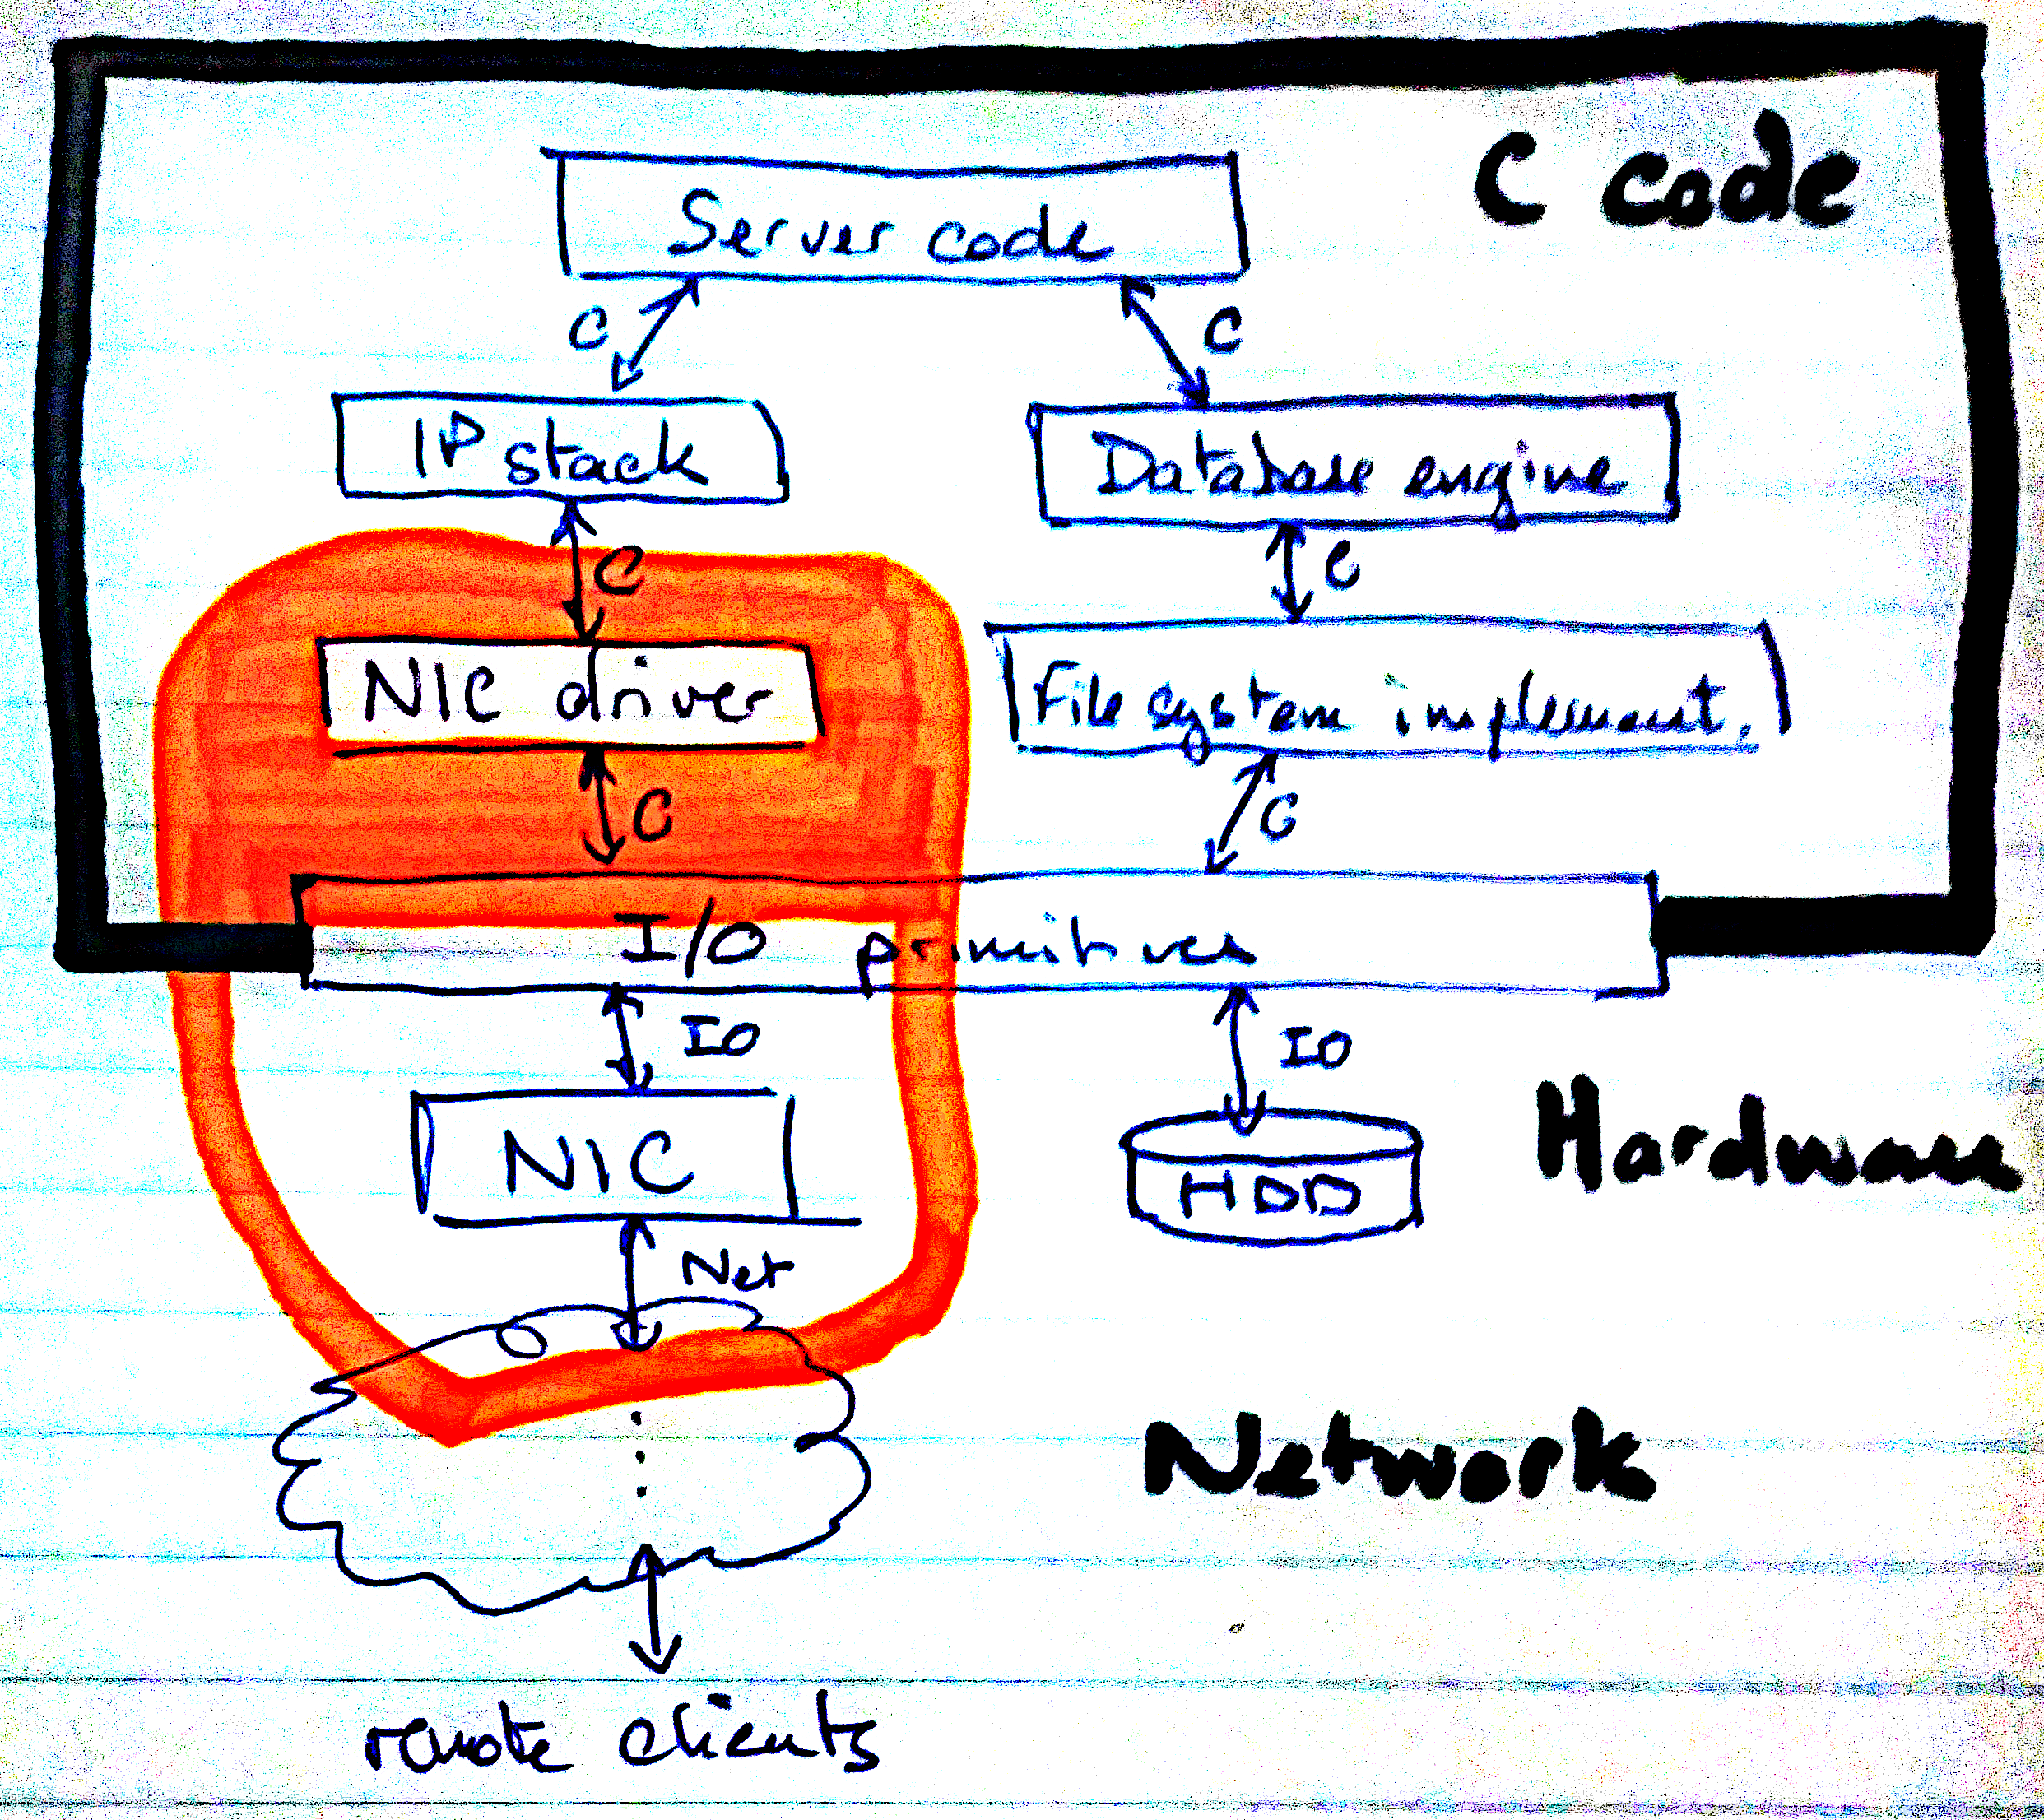 C code
Server code
C
C
IP stack
Database engine
C
C
NIC driver
File system implement.
C
C
I/O primitives
IO
IO
NIC
HDD
Hardware
Net
Network
remote clients